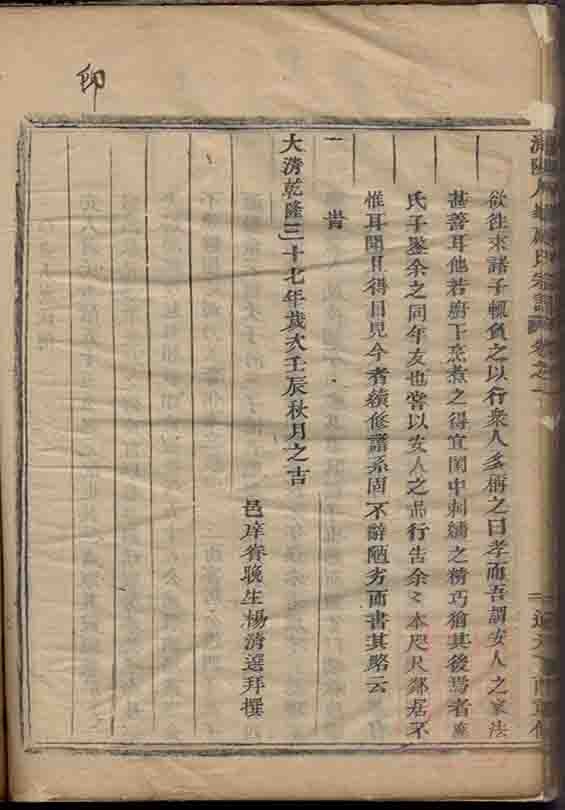 欲往來諸子輒負之以行衆人多稱之曰孝而吾謂安人之家法
甚善耳他若廚下烹煮之得宜閨中刺繡之精巧猶其後焉者
氏子鋆余之同年友也嘗以安人之品行告余々本咫尺鄰居不
惟耳聞且得目見今者續修譜系固不辭陋劣而書其略云
一
大清乾隆三十七年歲次壬辰秋月之吉
邑庠眷晚生楊清選拜撰
印